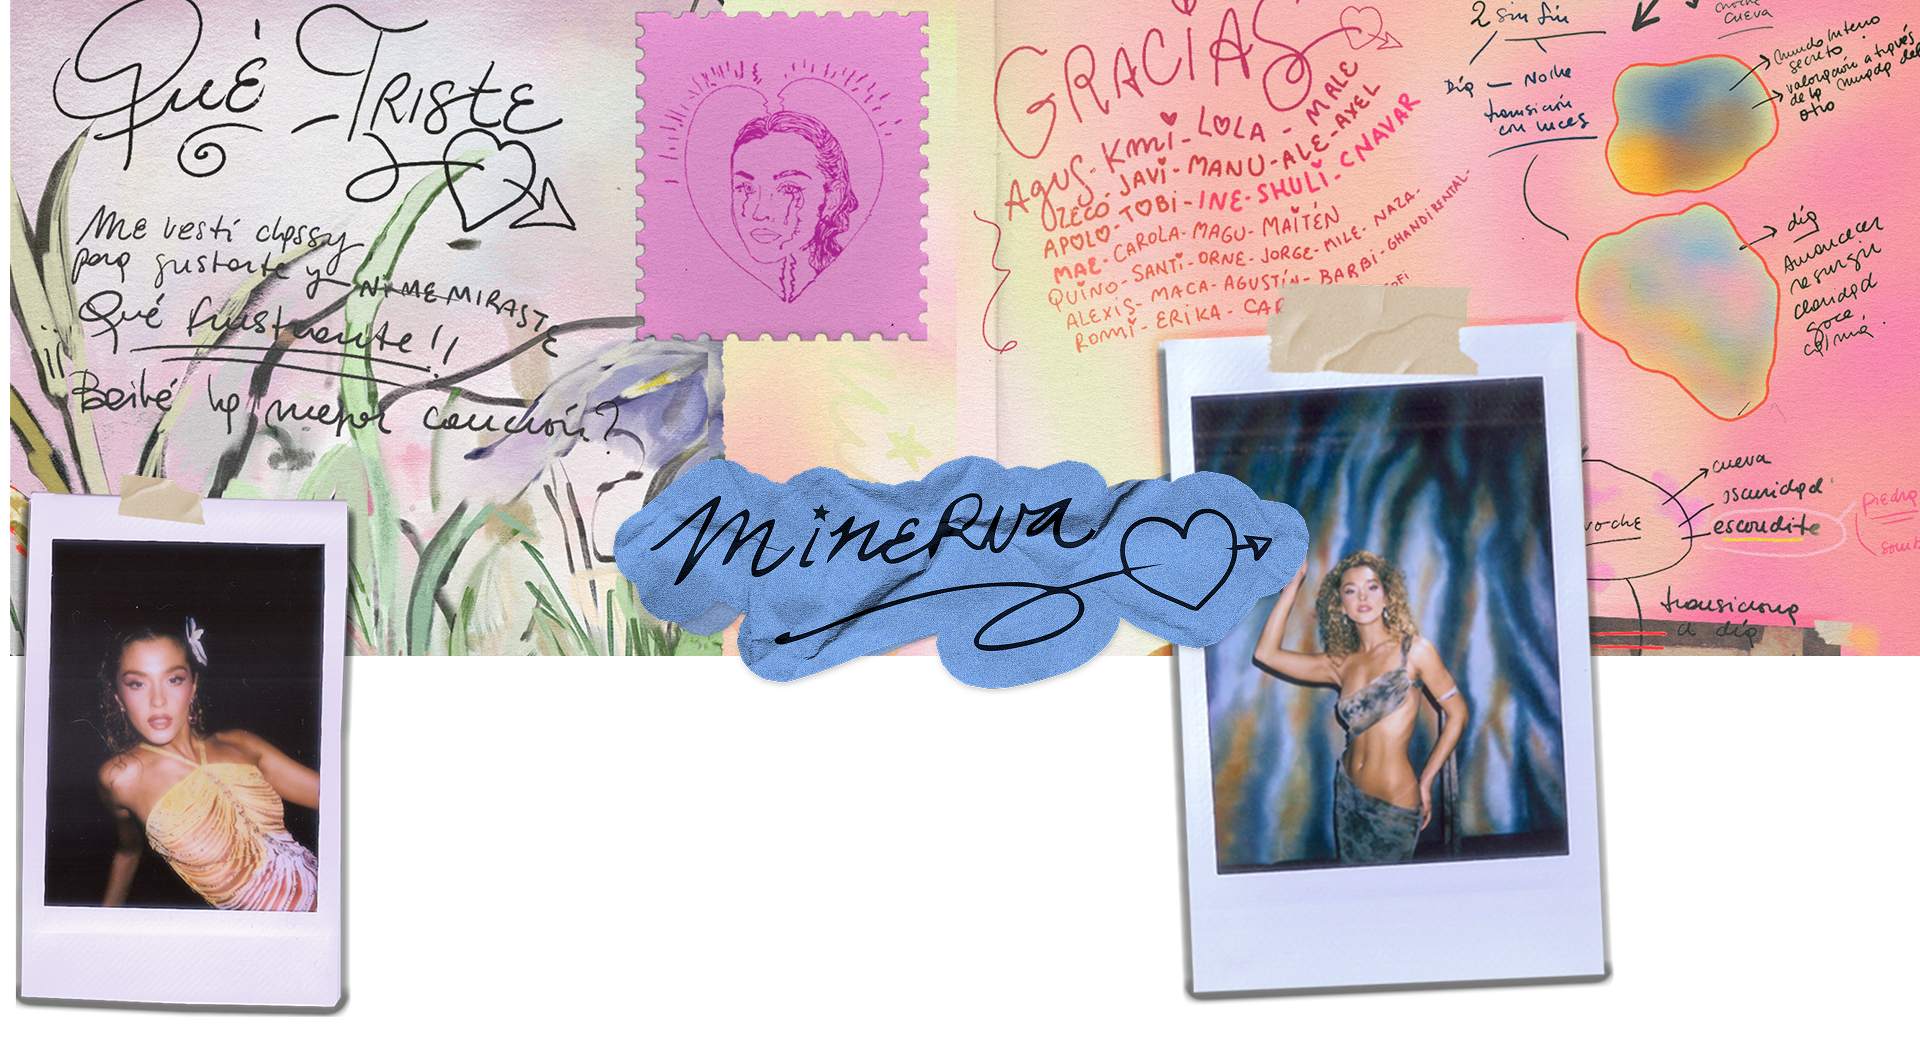 Qué TRISTE
Me vestí classy
para gustarte y NI ME MIRASTE
Qué frustrante!!
Bailé la mejor canción?
GRACIAS
AGUS - KMI - LOLA - MALE
ZECO - JAVI - MANU - ALE - AXEL
APOLO - TOBI - INE - SHULI - CNAVAR
MAE - CAROLA - MAGU - MAITÉN
QUINO - SANTI - ORNE - JORGE - MILE - NAZA -
ALEXIS - MACA - AGUSTÍN - BARBI - GHANDI RENTAL -
ROMMI - ERIKA - CAR
OFI
2 sin fin
Día — Noche
transición
con luces
noche
cueva
mundo interno
secreto
valoración a través
de la mirada del
otro
día
Amanecer
resurgir
claridad
goce
calma.
noche
cueva
oscuridad
escondite
Piedra
somb
transiciona
a día
MINERVA